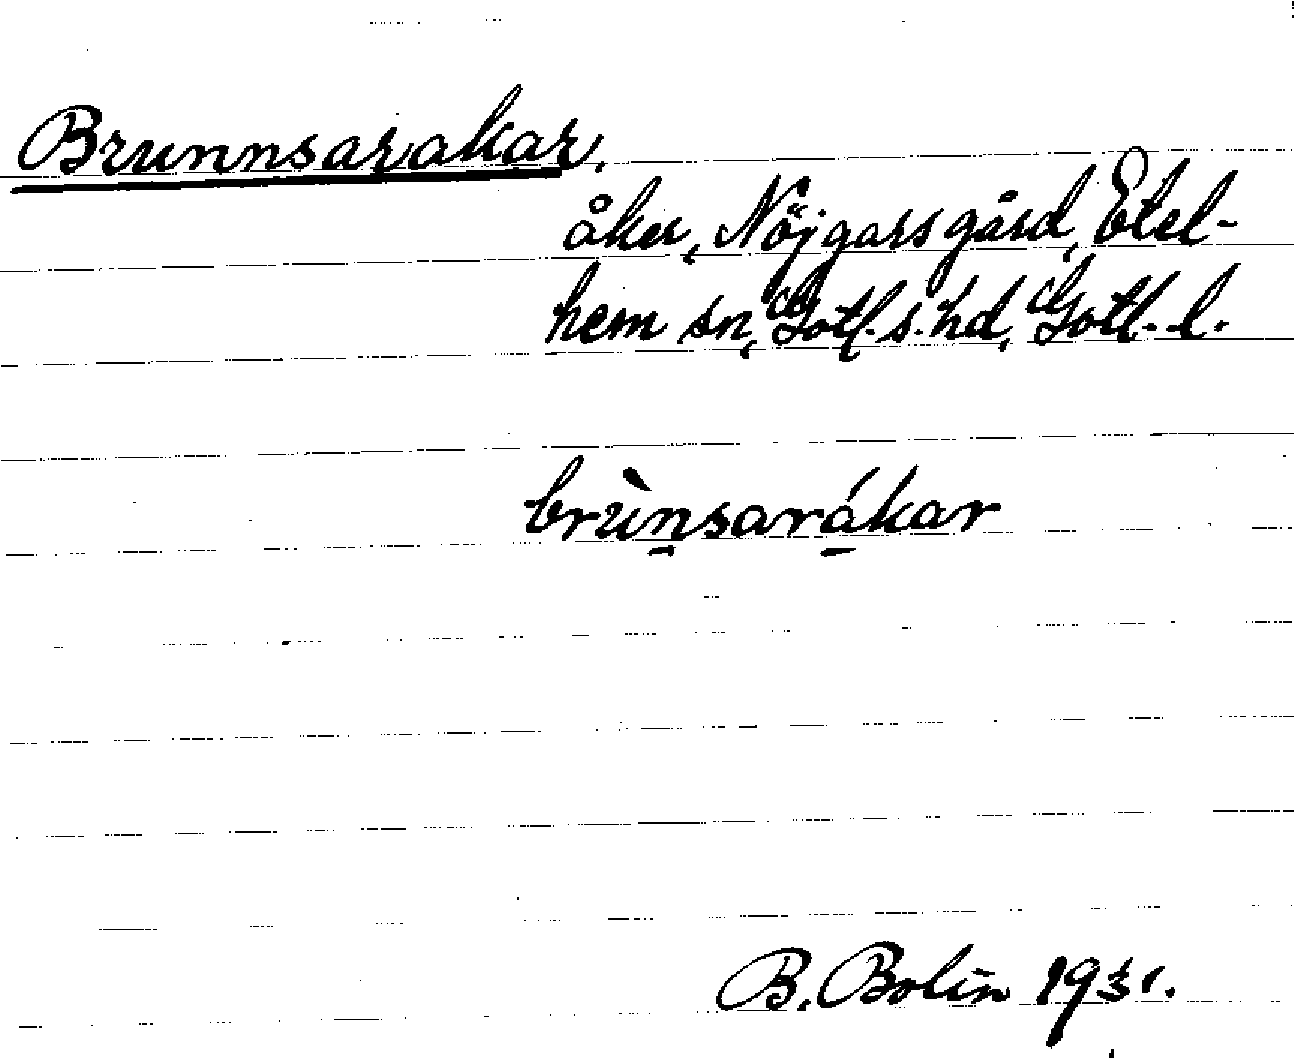 Brunnsarakar.
åker, Nöjgars gård, Etel-
hem sn, Gotl. s. hd, Gotl. l.
brùn̠sará̠kar
B. Bolin 1931.